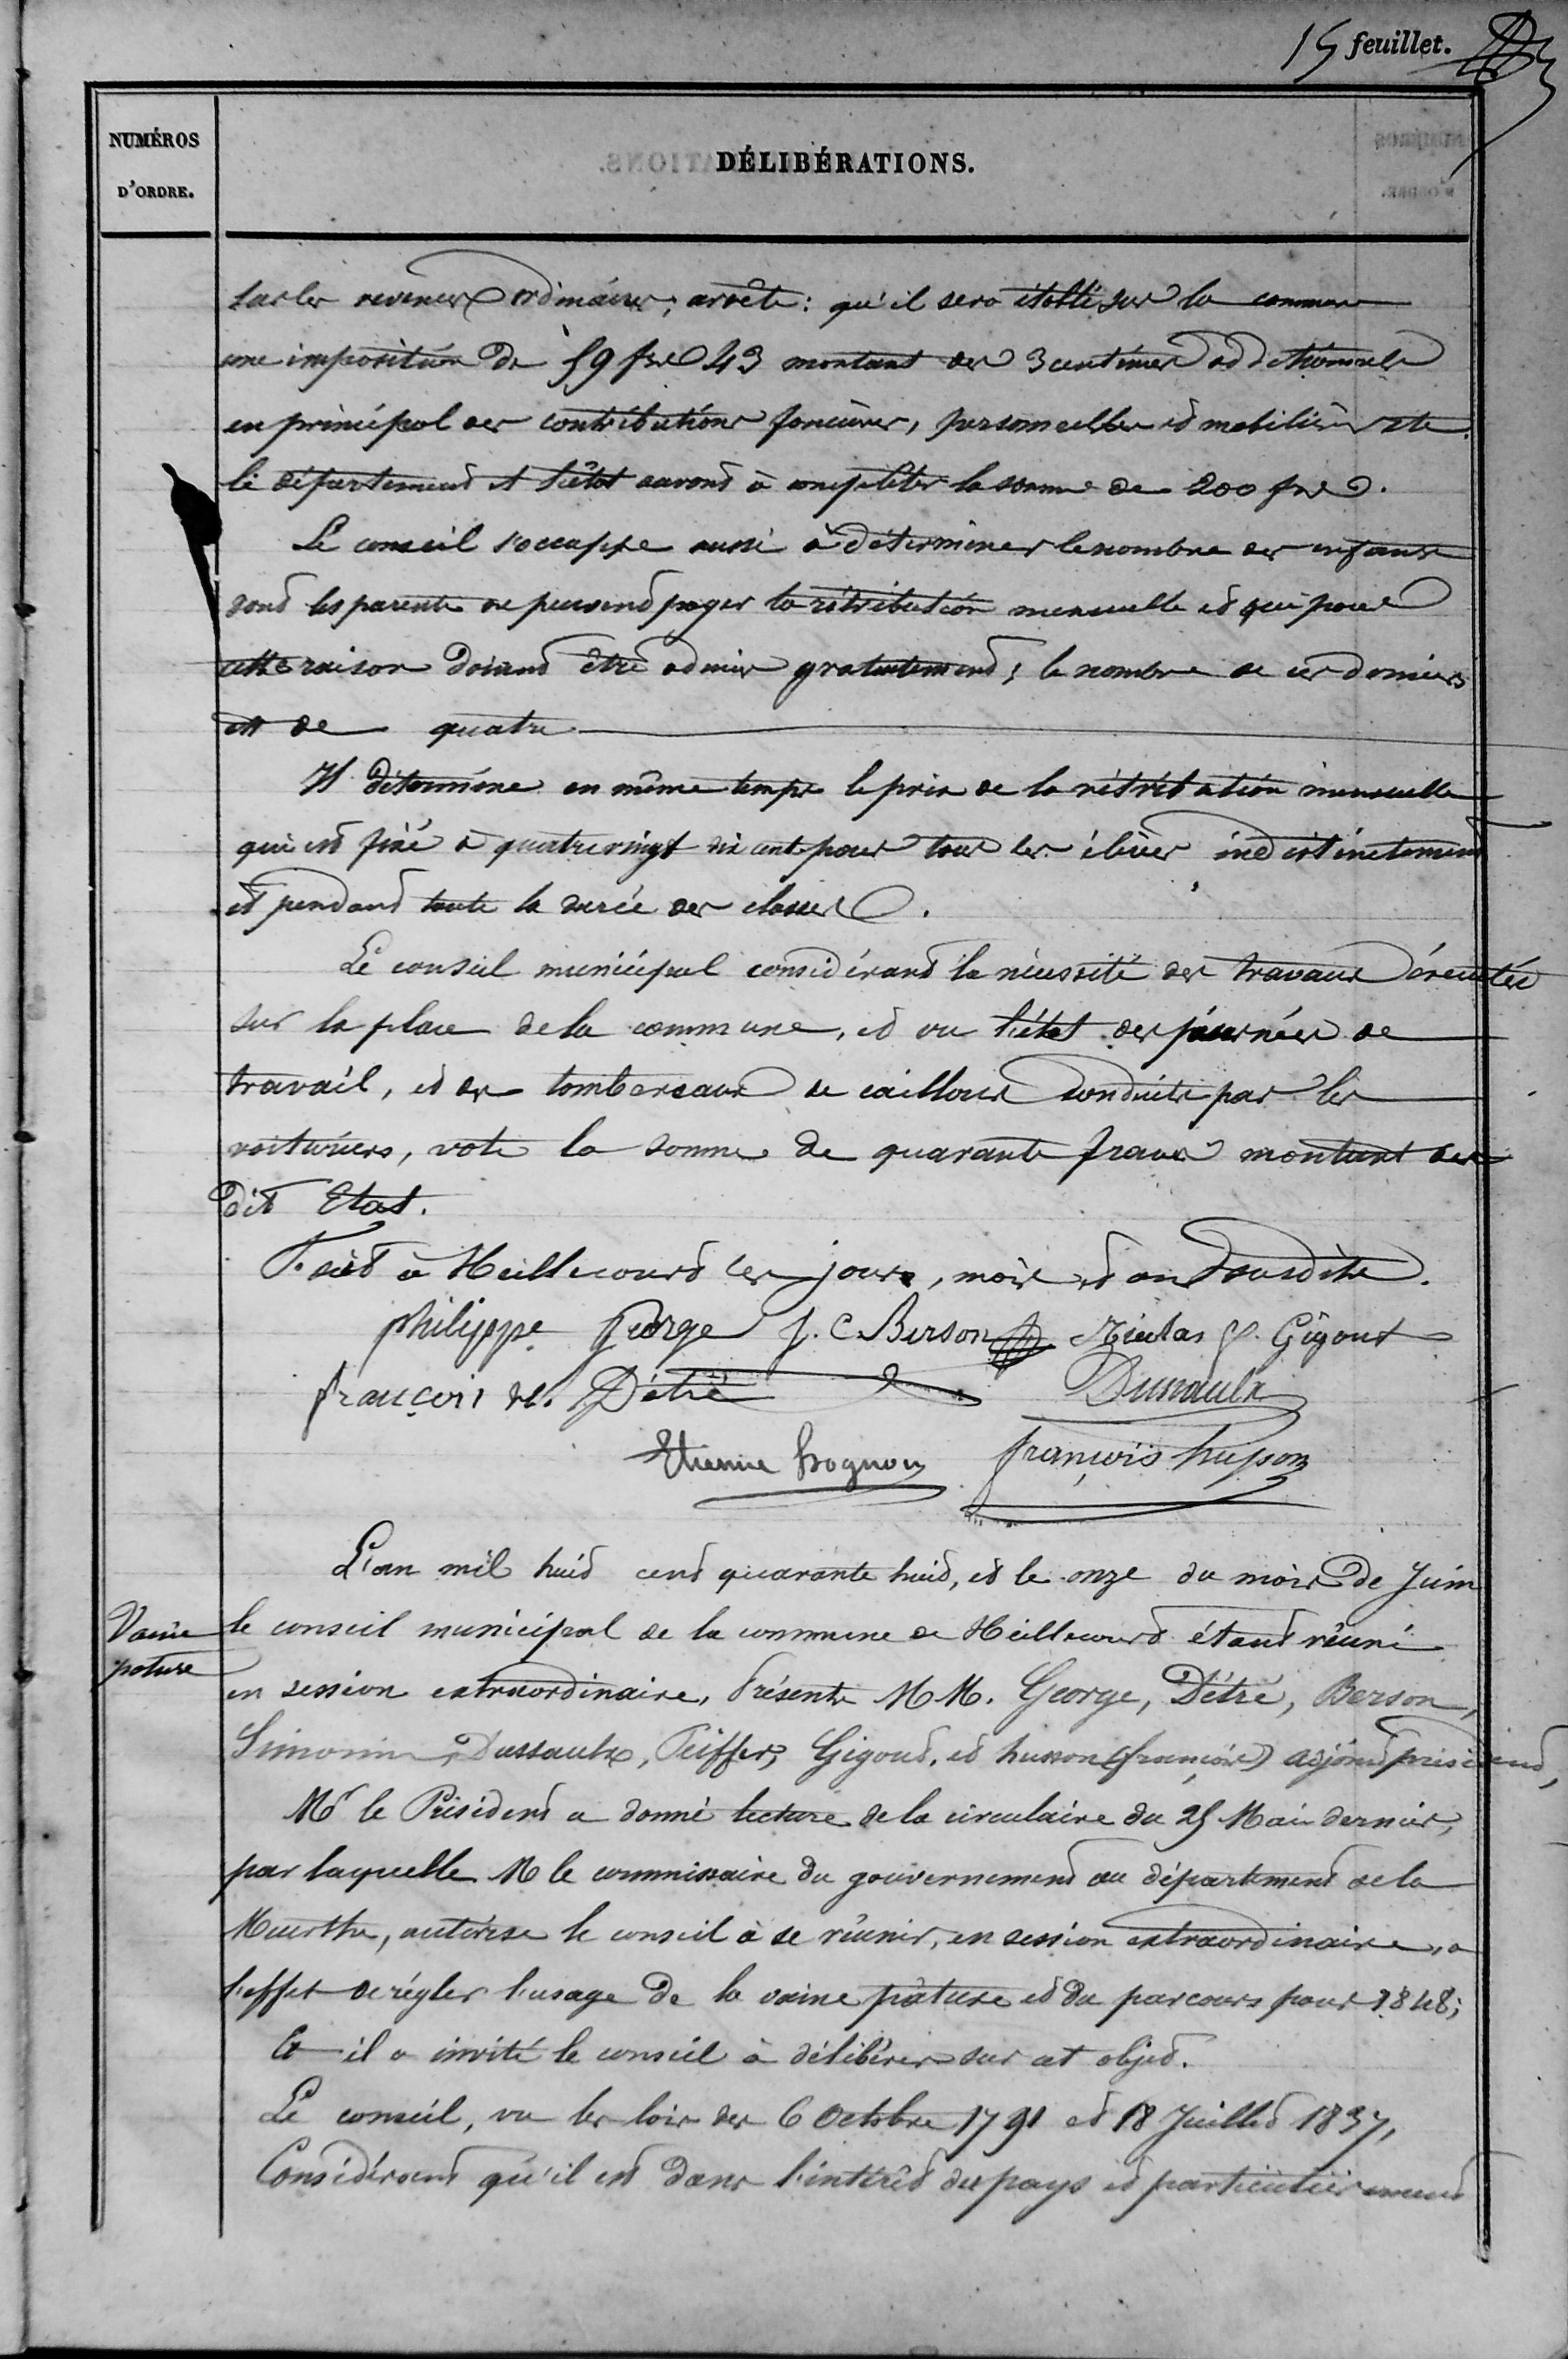 15 feuillet.
NUMÉROS
D'ORDRE.
DÉLIBÉRATIONS.
sur les revenus ordinaires; arrête: qu'il sera établi sur la commune
une imposition de 59 frs 43 montant des 3 centimes additionnels
en principal des contributions foncières, personnelles et mobilières etc.
le département et l'état auront à compléter la somme de 200 frs.
Le conseil s'occuppe aussi à déterminer le nombre des enfants
dont les parents ne peuvent payer la rétribution mensuelle et qui pour
cette raison doivent être admis gratuitement; le nombre de ces derniers
est de quatre
Il détermine en même temps le prix de la rétribution mensuelle
qui est fixé à quatre vingt dix cent. pour tous les élèves indistinctement
et pendant toute la durée des classes.
Le conseil municipal considérant la nécessité des travaux éxecutés
sur la place de la commune, et vu l'état des journées de
travail, et des tombereaux de cailloux conduits par les
voituriers, vote la somme de quarante francs montant des
dit Etat.
Fait à Heillecourt les jours, mois et an susdits.
philippe George J. C. Berson Nicolas Gigout
françois Détré Dussaulx
Etienne françois husson
L'an mil huit cent quarante huit, et le onze du mois de Juin
Vaine
pature
le conseil municipal de la commune de Heillecourt étant réuni
en session extraordinaire, Présents MM. George, Détré, Berson,
Simonin, Dussaulx, Peiffer, Gigout, et husson (françois) adjoint président,
Mr le Président a donné lecture de la circulaire du 25 Mai dernier,
par laquelle M le commissaire du gouvernement au département de la
Meurthe, autorise le conseil à se réunir, en session extraordinaire, a
l'effet de régler l'usage de la vaine pâture et du parcours pour 1848;
Et il a invité le conseil à délibérer sur cet objet.
Le conseil, vu les lois des 6 Octobre 1791 et 18 Juillet 1837,
Considérant qu'il est dans l'intérêt du pays et particulièrement